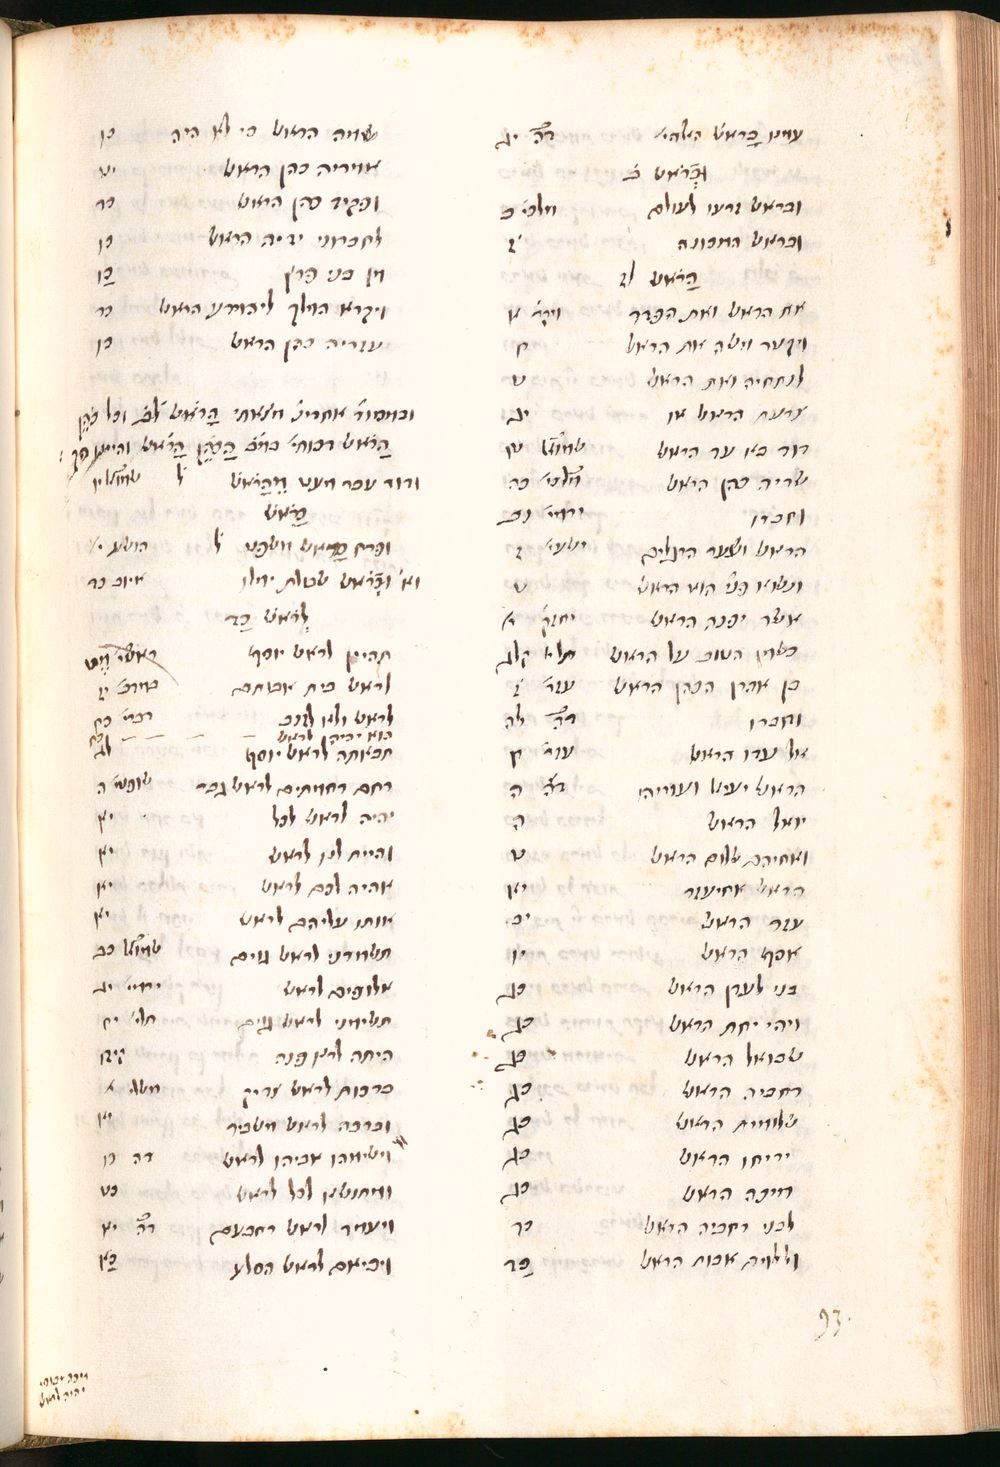 עמנו בראש האלהי׳ דה יג
ובראש ב
ובראש זרעו לעולם מלכי׳ ב
ובראש המכונה ז
הראש ל
את הראש ואת הפדר ויקר׳ א
ויקרב משה את הראש ח
לנתחיה ואת הראש ט
צרעת הראש או יג
דוד בא עד הראש שמואל
שריה כהן הראש מלכי׳ כה
וחברו ירמי׳ נב
הראש ושער הרגלים ישעי׳ ז
ונשוא פני הוא הראש ט
אשר יפנה הראש יחזק׳ י
כשמן הטוב על הראש תלי׳ קלג
בן אהרן הכהן הראש עזר׳ ז
וחברו דה לה
אל אדו הראש עזר׳ ח
הראש יעיאל וזכריהו דה ה
יואל הראש ה
ואחיהם שלום הראש ט
הראש אחיעזר יא
עזר הראש יב
אסף הראש יו
בני לעדן הראש כג
ויהי יחת הראש כג
שבואל הראש כג
רחביה הראש כג
שלומית הראש כג
יריהו הראש כג
מיכה הראש כג
לבני רחביה הראש כד
וללוים אבות הראש כד
93
שמרי הראש כי לא היה כו
אמריה כהן הראש יט
ופקיד כהן הראש כד
לחברוני יריה הראש כו
מן בני פרץ כז
ויקרא המלך ליהוידע הראש כד
עזריה כהן הראש כו
ובמסור׳ אחרינ׳ מצאתי הראש וכל כהן
הראש דכותי׳ הכהן הראש
ודוד עבר מעט מהראש ל שמואל יו
כראש
ופרח כראש משפט ל הושע י׳
וא׳ וכראש שבלת ימלו איוב כד
לראש כד
תהיין לראש יוסף בראשי׳ מט
לראש בית אבותם במדב׳ יז
לראש ולא לזנב דברי׳ כח
הוא יהיה לראש כח
תבואתה לראש יוסף לג
רחם רחמתים לראש גבר שופטי׳ ה
יהיה לראש לכל יא
והיית לנו לראש יא
אהיה לכם לראש יא
אותו עליהם לראש יא
תשמרני לראש גוים שמואל כב
אלופים לראש ירמי׳ יג
תשימני לראש גוים תלי׳ יח
היתה לראש פנה קיח
ברכות לראש צדיק משלי י
וברכה לראש משביר יא
וישימהו אביהו לראש דה כו
והמתנשא לכל לראש כט
ויעמד לראש רחבעם דה יא
ויביאום לראש הסלע כה
יהיה לראש